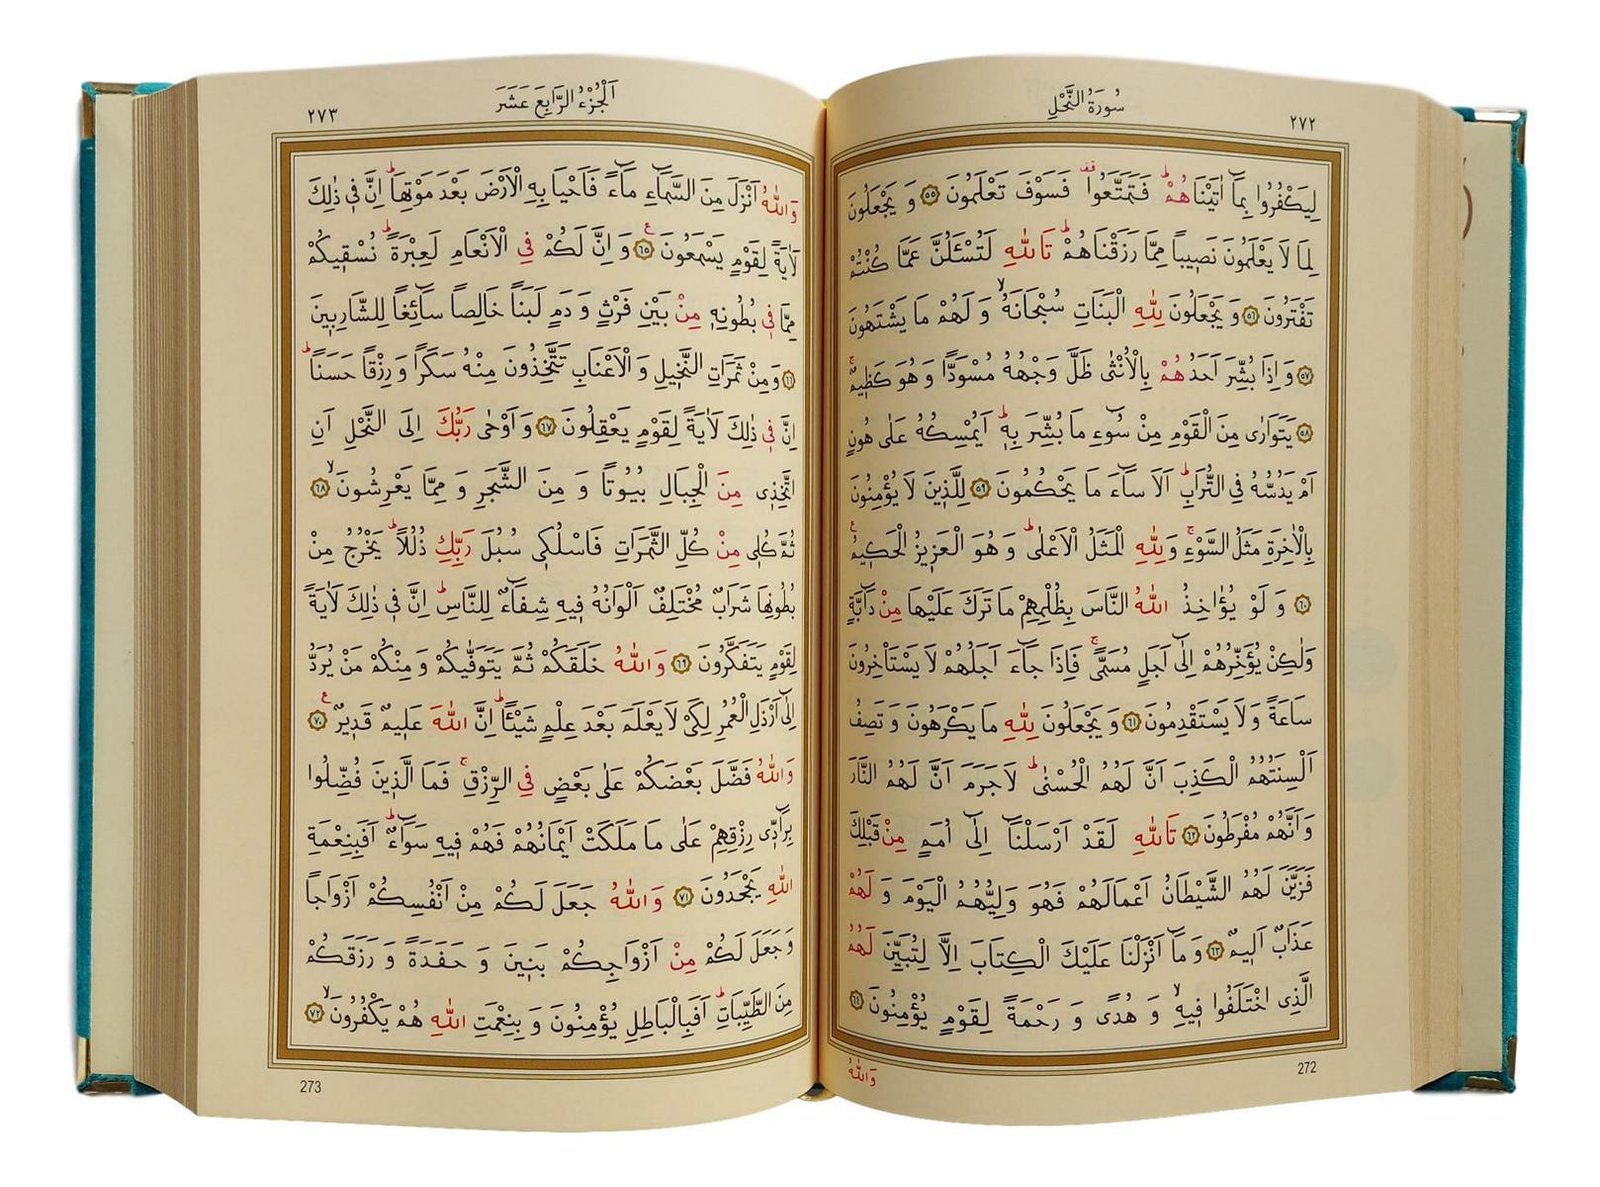 سُورَةُ النَّحْلِ
٢٧٢
لِيَكْفُرُوا بِمَٓا اٰتَيْنَاهُمْۜ فَتَمَتَّعُوا۠ فَسَوْفَ تَعْلَمُونَ ﴿٥٥﴾ وَ يَجْعَلُونَ
لِمَا لَا يَعْلَمُونَ نَص۪يباً مِمَّا رَزَقْنَاهُمْۜ تَاللّٰهِ لَتُسْـَٔلُنَّ عَمَّا كُنْتُمْ
تَفْتَرُونَ ﴿٥٦﴾ وَ يَجْعَلُونَ لِلّٰهِ الْبَنَاتِ سُبْحَانَهُۙ وَ لَهُمْ مَا يَشْتَهُونَ
﴿٥٧﴾ وَ اِذَا بُشِّرَ اَحَدُهُمْ بِالْاُنْثٰى ظَلَّ وَجْهُهُ مُسْوَدًّا وَ هُوَ كَظ۪يمٌۚ
﴿٥٨﴾ يَتَوَارٰى مِنَ الْقَوْمِ مِنْ سُٓوءِ مَا بُشِّرَ بِه۪ۜ اَيُمْسِكُهُ عَلٰى هُونٍ
اَمْ يَدُسُّهُ فِي التُّرَابِۜ اَلَا سَٓاءَ مَا يَحْكُمُونَ ﴿٥٩﴾ لِلَّذ۪ينَ لَا يُؤْمِنُونَ
بِالْاٰخِرَةِ مَثَلُ السَّوْءِۚ وَلِلّٰهِ الْمَثَلُ الْاَعْلٰىۜ وَ هُوَ الْعَز۪يزُ الْحَك۪يمُ۟
﴿٦٠﴾ وَ لَوْ يُؤَاخِذُ اللّٰهُ النَّاسَ بِظُلْمِهِمْ مَا تَرَكَ عَلَيْهَا مِنْ دَٓابَّةٍ
وَلٰكِنْ يُؤَخِّرُهُمْ اِلٰٓى اَجَلٍ مُسَمًّىۚ فَاِذَا جَٓاءَ اَجَلُهُمْ لَا يَسْتَأْخِرُونَ
سَاعَةً وَ لَا يَسْتَقْدِمُونَ ﴿٦١﴾ وَ يَجْعَلُونَ لِلّٰهِ مَا يَكْرَهُونَ وَ تَصِفُ
اَلْسِنَتُهُمُ الْكَذِبَ اَنَّ لَهُمُ الْحُسْنٰىۜ لَا جَرَمَ اَنَّ لَهُمُ النَّارَ
وَ اَنَّهُمْ مُفْرَطُونَ ﴿٦٢﴾ تَاللّٰهِ لَقَدْ اَرْسَلْنَٓا اِلٰٓى اُمَمٍ مِنْ قَبْلِكَ
فَزَيَّنَ لَهُمُ الشَّيْطَانُ اَعْمَالَهُمْ فَهُوَ وَلِيُّهُمُ الْيَوْمَ وَ لَهُمْ
عَذَابٌ اَل۪يمٌ ﴿٦٣﴾ وَ مَٓا اَنْزَلْنَا عَلَيْكَ الْكِتَابَ اِلَّا لِتُبَيِّنَ لَهُمُ
الَّذِي اخْتَلَفُوا ف۪يهِۙ وَ هُدًى وَ رَحْمَةً لِقَوْمٍ يُؤْمِنُونَ ﴿٦٤﴾
272
وَاللّٰهُ
اَلْجُزْءُ الرَّابِعَ عَشَرَ
٢٧٣
وَاللّٰهُ اَنْزَلَ مِنَ السَّمَٓاءِ مَٓاءً فَاَحْيَا بِهِ الْاَرْضَ بَعْدَ مَوْتِهَاۜ اِنَّ ف۪ي ذٰلِكَ
لَاٰيَةً لِقَوْمٍ يَسْمَعُونَ۟ ﴿٦٥﴾ وَ اِنَّ لَكُمْ فِي الْاَنْعَامِ لَعِبْرَةًۜ نُسْق۪يكُمْ
مِمَّا ف۪ي بُطُونِه۪ مِنْ بَيْنِ فَرْثٍ وَ دَمٍ لَبَناً خَالِصاً سَٓائِغاً لِلشَّارِب۪ينَ
﴿٦٦﴾ وَ مِنْ ثَمَرَاتِ النَّخ۪يلِ وَ الْاَعْنَابِ تَتَّخِذُونَ مِنْهُ سَكَراً وَ رِزْقاً حَسَناًۜ
اِنَّ ف۪ي ذٰلِكَ لَاٰيَةً لِقَوْمٍ يَعْقِلُونَ ﴿٦٧﴾ وَ اَوْحٰى رَبُّكَ اِلَى النَّحْلِ اَنِ
اتَّخِذ۪ي مِنَ الْجِبَالِ بُيُوتاً وَ مِنَ الشَّجَرِ وَ مِمَّا يَعْرِشُونَۙ ﴿٦٨﴾
ثُمَّ كُل۪ي مِنْ كُلِّ الثَّمَرَاتِ فَاسْلُك۪ي سُبُلَ رَبِّكِ ذُلُلاًۜ يَخْرُجُ مِنْ
بُطُونِهَا شَرَابٌ مُخْتَلِفٌ اَلْوَانُهُ ف۪يهِ شِفَٓاءٌ لِلنَّاسِۜ اِنَّ ف۪ي ذٰلِكَ لَاٰيَةً
لِقَوْمٍ يَتَفَكَّرُونَ ﴿٦٩﴾ وَاللّٰهُ خَلَقَكُمْ ثُمَّ يَتَوَفّٰيكُمْ وَ مِنْكُمْ مَنْ يُرَدُّ
اِلٰٓى اَرْذَلِ الْعُمُرِ لِكَيْ لَا يَعْلَمَ بَعْدَ عِلْمٍ شَيْـٔاًۜ اِنَّ اللّٰهَ عَل۪يمٌ قَد۪يرٌ۟ ﴿٧٠﴾
وَاللّٰهُ فَضَّلَ بَعْضَكُمْ عَلٰى بَعْضٍ فِي الرِّزْقِۚ فَمَا الَّذ۪ينَ فُضِّلُوا
بِرَٓادّ۪ي رِزْقِهِمْ عَلٰى مَا مَلَكَتْ اَيْمَانُهُمْ فَهُمْ ف۪يهِ سَوَٓاءٌۜ اَفَبِنِعْمَةِ
اللّٰهِ يَجْحَدُونَ ﴿٧١﴾ وَاللّٰهُ جَعَلَ لَكُمْ مِنْ اَنْفُسِكُمْ اَزْوَاجاً
وَ جَعَلَ لَكُمْ مِنْ اَزْوَاجِكُمْ بَن۪ينَ وَ حَفَدَةً وَ رَزَقَكُمْ
مِنَ الطَّيِّبَاتِۜ اَفَبِالْبَاطِلِ يُؤْمِنُونَ وَ بِنِعْمَتِ اللّٰهِ هُمْ يَكْفُرُونَۙ ﴿٧٢﴾
273